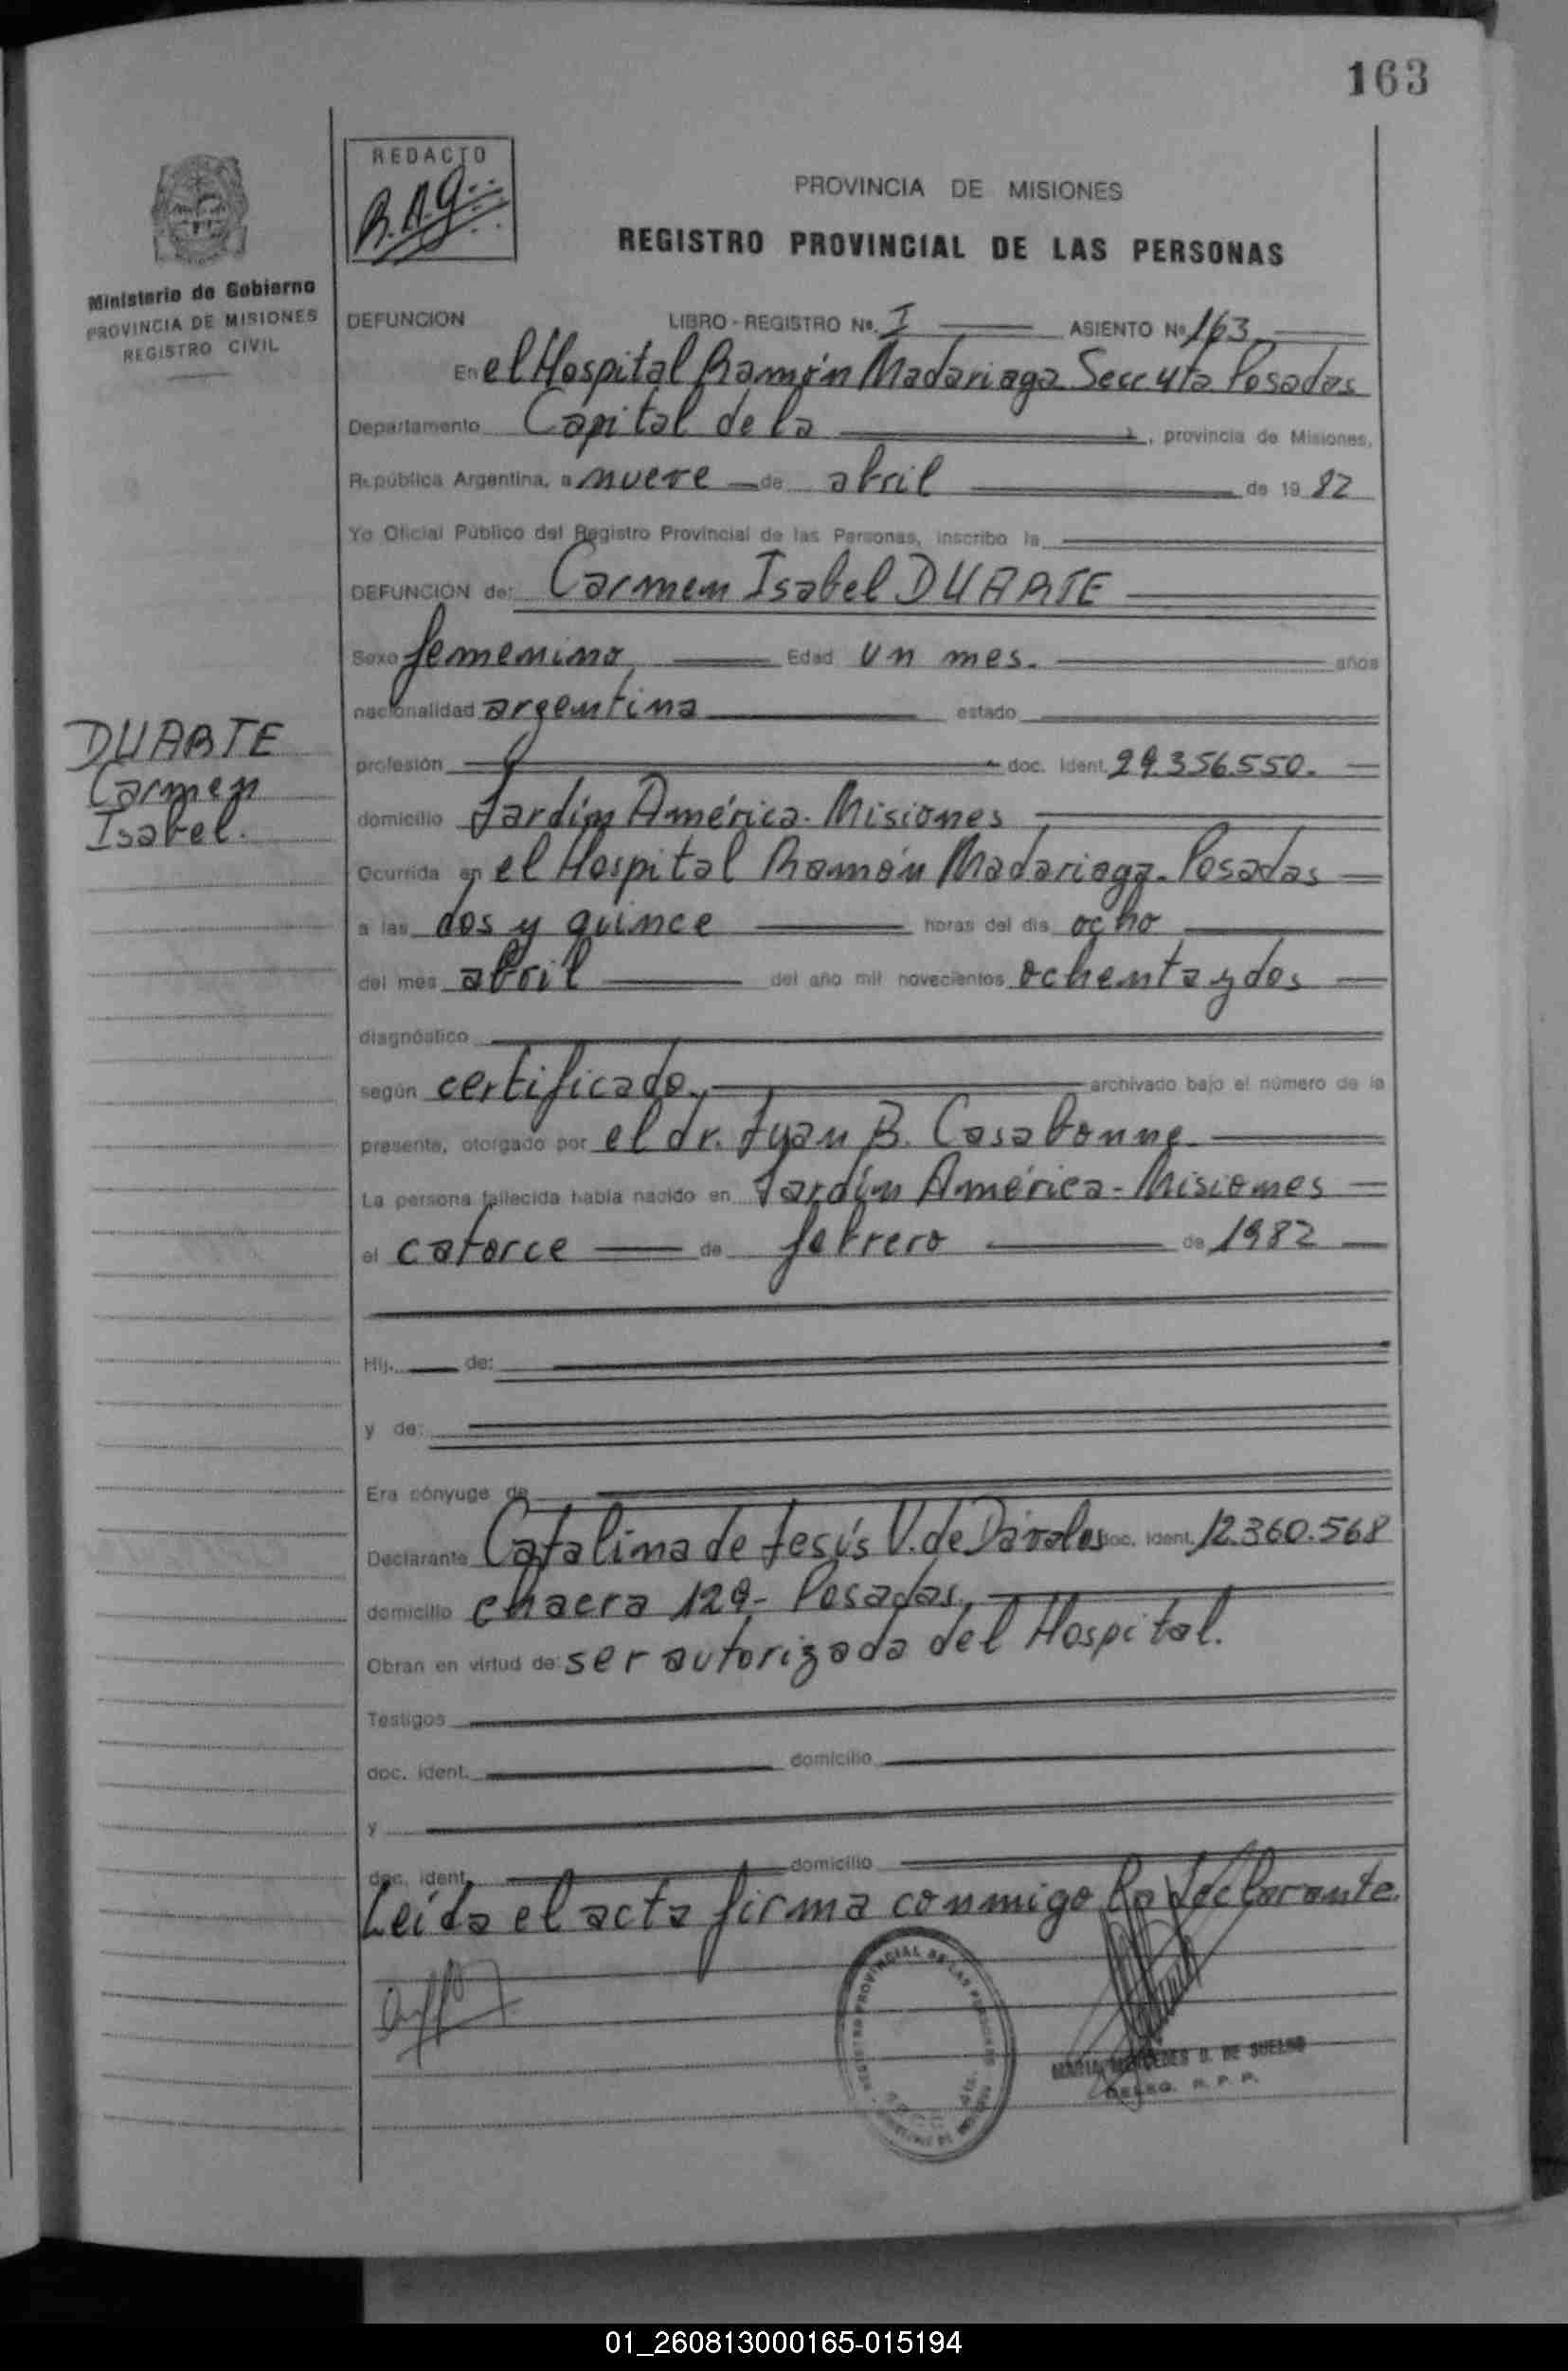 163
REDACTO
R.A.G.
PROVINCIA DE MISIONES
REGISTRO PROVINCIAL DE LAS PERSONAS
Ministerio de Gobierno
PROVINCIA DE MISIONES
REGISTRO CIVIL
DEFUNCION LIBRO - REGISTRO Nº. I ASIENTO Nº 163
En el Hospital Ramón Madariaga Secc 4ta Posadas
Departamento Capital de la , provincia de Misiones,
República Argentina, a nueve de abril de 19 82
Yo Oficial Público del Registro Provincial de las Personas, inscribo la
DEFUNCION de: Carmen Isabel DUARTE
Sexo femenino Edad un mes. años
nacionalidad argentina estado
DUARTE
Carmen
Isabel.
profesión doc. ident. 29.356.550.
domicilio Jardín América. Misiones
Ocurrida en el Hospital Ramón Madariaga. Posadas
a las dos y quince horas del día ocho
del mes abril del año mil novecientos ochenta y dos
diagnóstico
según certificado. archivado bajo el número de la
presente, otorgado por el dr. Juan B. Casabonne
La persona fallecida había nacido en Jardín América - Misiones
el catorce de febrero de 1982
Hij. de:
y de:
Era cónyuge de
Declarante Catalina de Jesús V. de Dávalos doc. ident. 12.360.568
domicilio chacra 129- Posadas.
Obran en virtud de: ser autorizada del Hospital.
Testigos
doc. ident. domicilio
y
doc. ident. domicilio
Leída el acta firma conmigo la declarante.
REGISTRO PROVINCIAL DE LAS PERSONAS
MARIA MERCEDES D. DE SUELDO
DELEG. R. P. P.
01_260813000165-015194